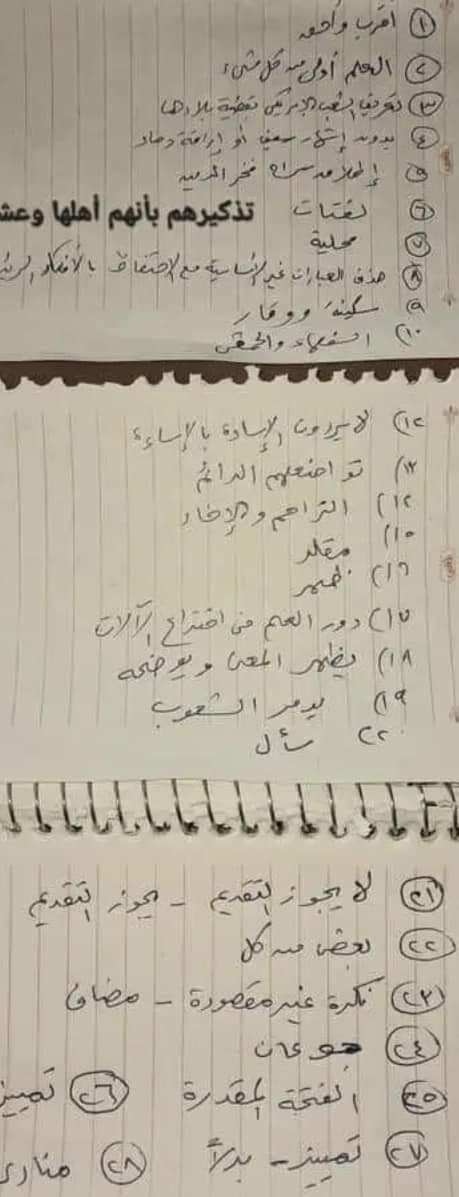 ١ أقرب وأحق
٢ العلم أولى من كل شيء
٣ تعريف الشعب الأمريكي بقضية بلادها
٤ بدون إشهار سيف أو إراقة دماء
٥ إطلاقه فخر المدينة
٦ لفتات تذكيرهم بأنهم أهلها وعش
٧ محلية
٨ حذف العبارات غير الأساسية مع الاحتفاظ بالأفكار الرئي
٩ سكينة ووقار
١٠) السفهاء والحمقى
١٢) لا يردون الإساءة بالإساءة
١٣) تواضعهم الدائم
١٤) التراحم والإخاء
١٥) مقلد
١٦) ظهر
١٧) دور العلم في اختراع الآلات
١٨) يظهر المعنى ويوضحه
١٩) يدمر الشعوب
٢٠) سأل
٢١ لا يجوز التقديم - يجوز التقديم
٢٢ بعض من كل
٢٣ نكرة غير مقصودة - مضاف
٢٤ جوعان
٢٥ الفتحة المقدرة ٢٦ تمييز
٢٧ تمييز - بدلاً ٢٨ منادى